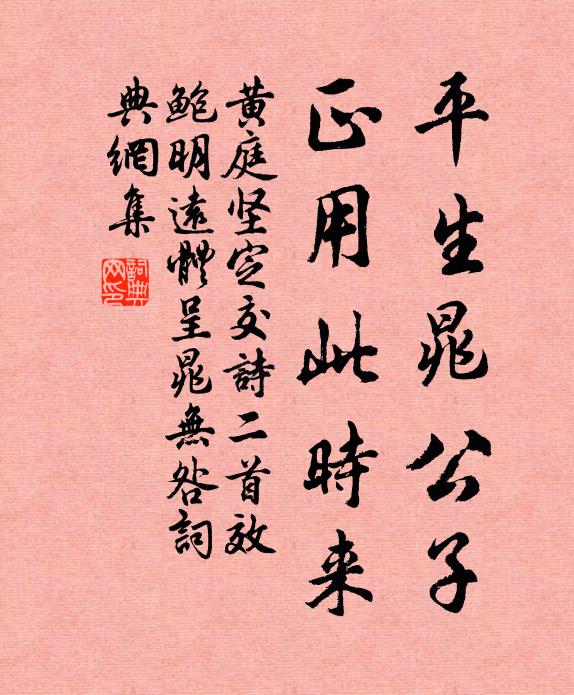 平生晁公子
正用此時来
黄庭坚定交詩二首效
鲍明遠體呈晁無咎詞
典網集
詞典网印